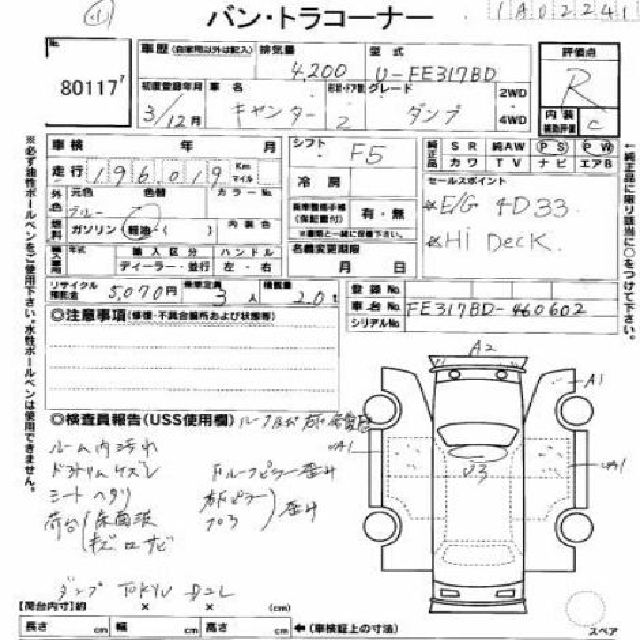 バン・トラコーナー
1A02241
No.
80117
車歴 (自家用以外は記入)
排気量
4,200
型式
U-FE317BD
評価点
R
初度登録年月
3/12月
車名
キャンター
2
グレード
ダンプ
2WD
4WD
内装
補助評価
C
車検 年 月
走行
196,019
Km
マイル
シフト
F5
冷房
純正品
SR
純AW
PS
PW
カワ
TV
ナビ
エアB
セールスポイント
※E/G 4D33
※Hi Deck.
外色
元色
色替
カラーNo.
ブルー
燃料
ガソリン・軽油・( )
内装色
(保証書付)
有・無
※書類と一緒に保管下さい。
名義変更期限
月 日
年式
輸入区分
ハンドル
ディーラー・並行
左・右
リサイクル
預託金
5,070円
乗車定員
3人
積載量
2.0t
登録No.
車台No.
FE317BD-460602
シリアルNo.
◎注意事項(修復・不具合箇所および状態等)
◎検査員報告(USS使用欄)
ルーム内汚れ
シートヘタリ
荷台
サビ
ダンプ TOKYU
A2
A1
A1
A1
【荷台内寸】約 × × (cm)
長さ cm
幅 cm
高さ cm
←(車検証上の寸法)
スペア
※必ず油性ボールペンをご使用下さい。水性ボールペンは使用できません。
↑純正品に限り該当に○をつけて下さい。